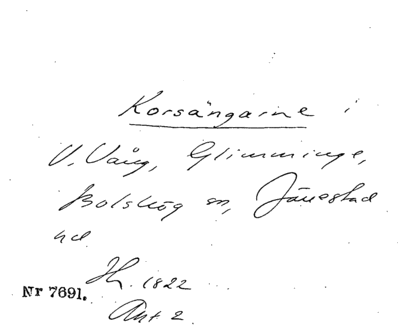 Korsängarne i
V. Vång, Glimminge,
Bolskog m, Jänestad
Nr 7691.
1822
Akt 2